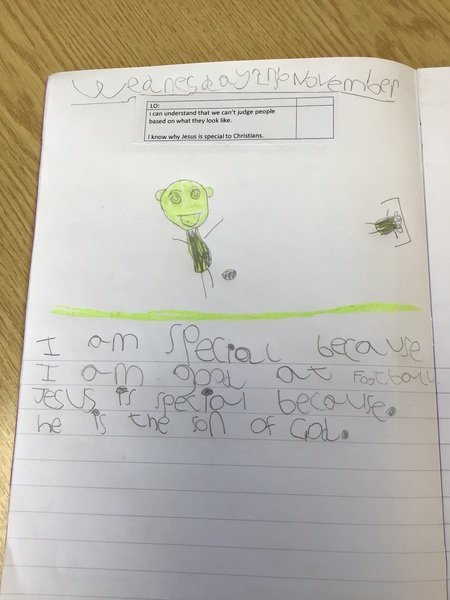 Wednesday November
LO:
I can understand that we can't judge people
based on what they look like.
I know why Jesus is special to Christians.
I am special because
I am good at Football.
Jesus is special because.
he is the son of God.